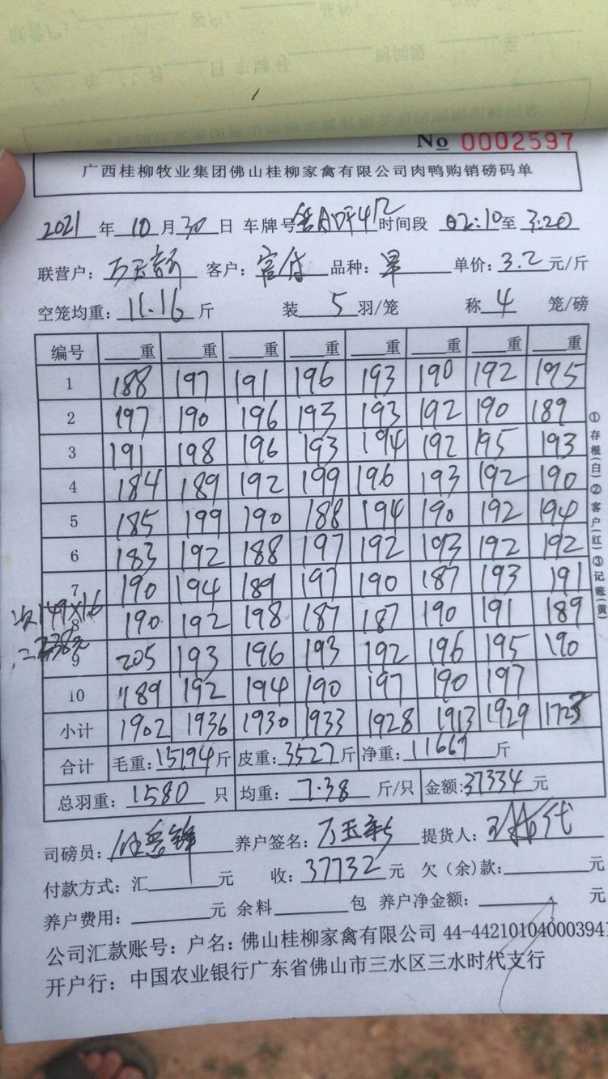 No 0002597
广西桂柳牧业集团佛山桂柳家禽有限公司肉鸭购销磅码单
2021 年 10 月 30 日 车牌号 时间段 02:10 至 3:20
联营户: 万玉新 客户: 富代 品种: 单价: 3.2 元/斤
空笼均重: 11.16 斤 装 5 羽/笼 称 4 笼/磅
编号 重 重 重 重 重 重 重 重
1 188 197 191 196 193 190 192 195
2 197 190 196 193 193 192 190 189
3 191 198 196 193 194 192 195 193
4 184 189 192 199 196 193 192 190
5 185 199 190 188 194 190 192 194
6 183 192 188 197 192 193 192 192
7 190 194 189 197 190 187 193 191
8 190 192 198 187 187 190 191 189
9 205 193 196 193 192 196 195 190
10 189 192 194 190 197 190 197
小计 1902 1936 1930 1933 1928 1913 1929 1723
合计 毛重: 15194 斤 皮重: 3527 斤 净重: 11667 斤
总羽重: 1580 只 均重: 7.38 斤/只 金额: 37334 元
149×1.6
=238元
司磅员: 养户签名: 万玉新 提货人:
付款方式: 汇 元 收: 37732 元 欠(余)款: 元
养户费用: 元 余料 包 养户净金额: 元
公司汇款账号: 户名: 佛山桂柳家禽有限公司 44-442101040003941
开户行: 中国农业银行广东省佛山市三水区三水时代支行
①存根(白)②客户(红)③记账(黄)